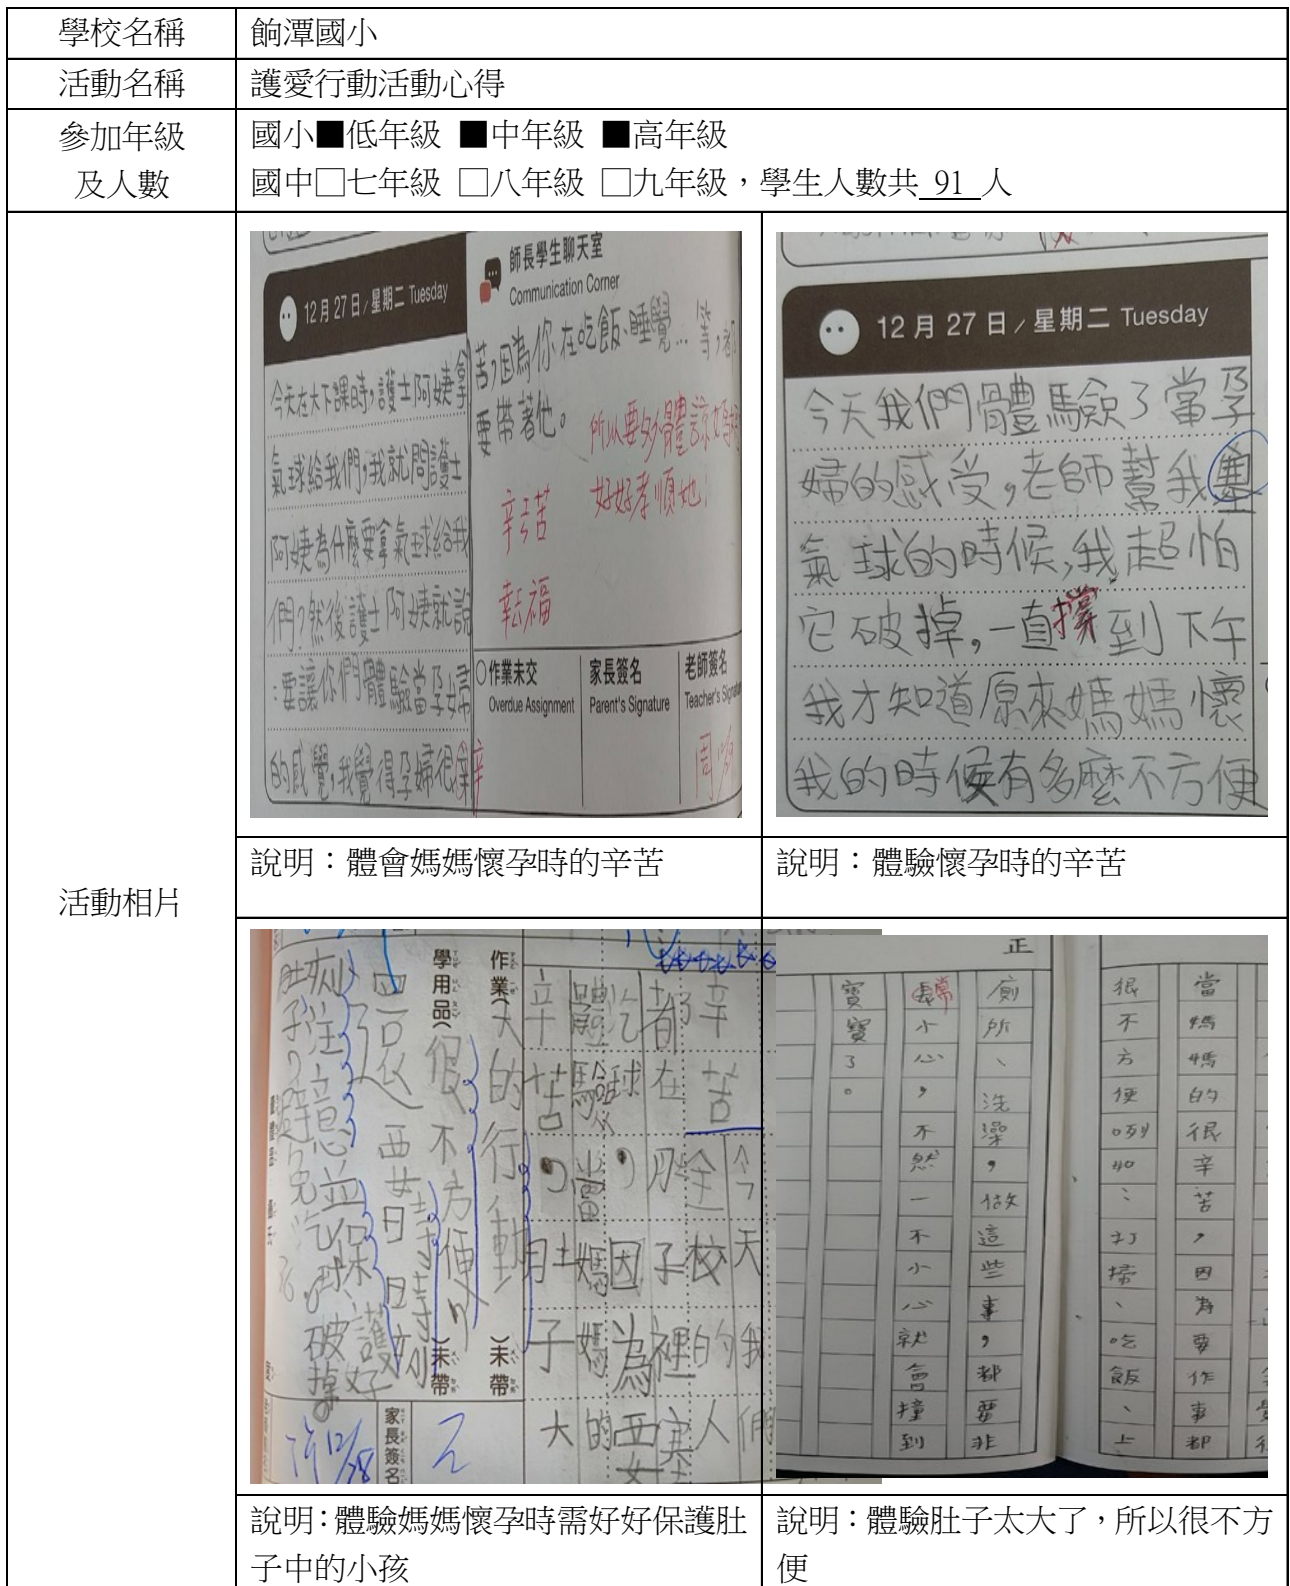 學校名稱
餉潭國小
活動名稱
護愛行動活動心得
參加年級
及人數
國小■低年級 ■中年級 ■高年級
國中□七年級 □八年級 □九年級，學生人數共 91 人
活動相片
12月27日/星期二 Tuesday
今天在大下課時，護士阿姨拿
氣球給我們，我就問護士
阿姨為什麼要拿氣球給我
們？然後護士阿姨就說
：要讓你們體驗當孕婦
的感覺，我覺得孕婦很辛
師長學生聊天室
Communication Corner
苦，因為你在吃飯、睡覺…等，都
要帶著他。
所以要多體諒媽媽
好好孝順她！
辛苦
幸福
作業未交
Overdue Assignment
家長簽名
Parent's Signature
老師簽名
Teacher's Signature
12月27日/星期二 Tuesday
今天我們體驗了當孕
婦的感受，老師幫我塞
氣球的時候，我超怕
它破掉，一直撐到下午
我才知道原來媽媽懷
我的時候有多麼不方便
說明：體會媽媽懷孕時的辛苦
說明：體驗懷孕時的辛苦
今天我們
辛苦全校的人
都在肚子裡塞
汽球，因為要
體驗當媽媽的
辛苦，肚子大
作業( )未帶
天的行動
學用品( )未帶
很不方便
還要時時
刻注意並保護好
肚子，避免汽球破掉。
家長簽名
12/28
正
當媽媽的很辛苦，因為要作事都
很不方便例如：打掃、吃飯、上
廁所、洗澡，做這些事，都要非
常小心，不然一不小心就會撞到
寶寶了。
說明：體驗媽媽懷孕時需好好保護肚
子中的小孩
說明：體驗肚子太大了，所以很不方
便